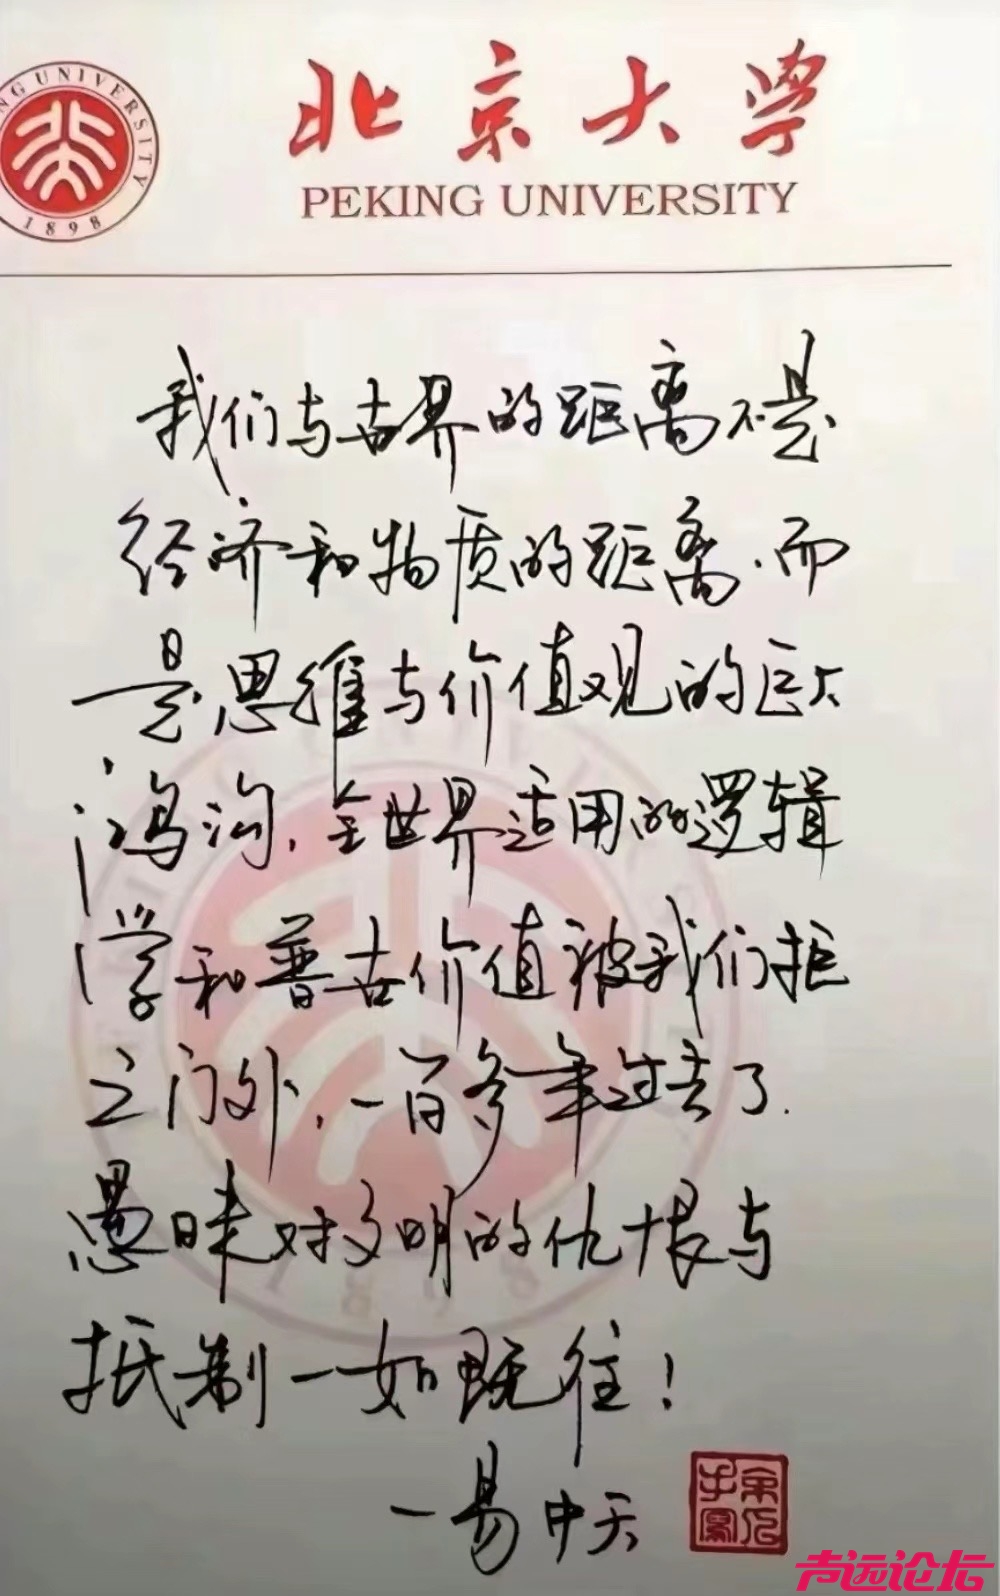 PEKING UNIVERSITY
1898
北京大学
PEKING UNIVERSITY
我们与世界的距离不是
经济和物质的距离.而
是思维与价值观的巨大
鸿沟,全世界适用的逻辑
学和普世价值被我们拒
之门外,一百多年过去了.
愚昧对文明的仇恨与
抵制一如既往!
一易中天
声远论坛